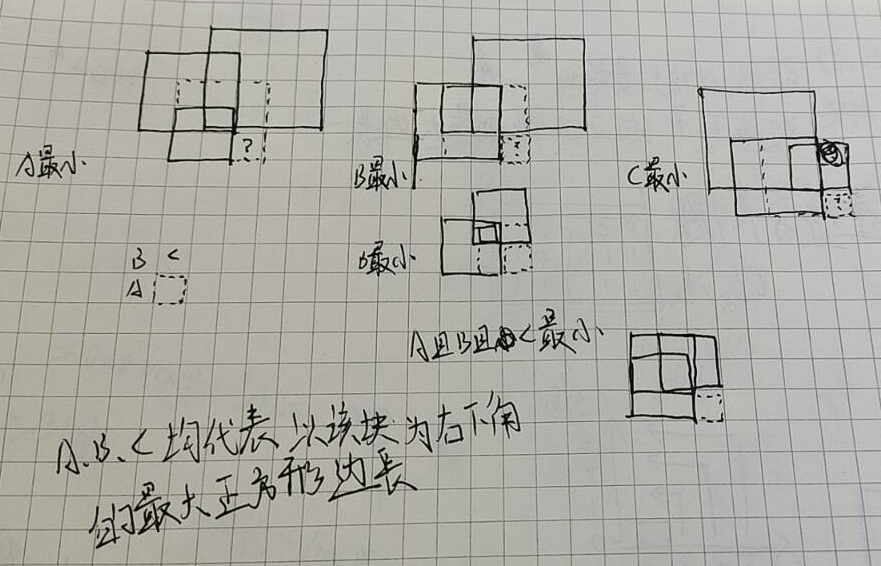 ?
A最小.
B最小.
C最小.
B C
A
D最小.
A且B且C最小.
A.B.C均代表以该块为右下角
的最大正方形边长